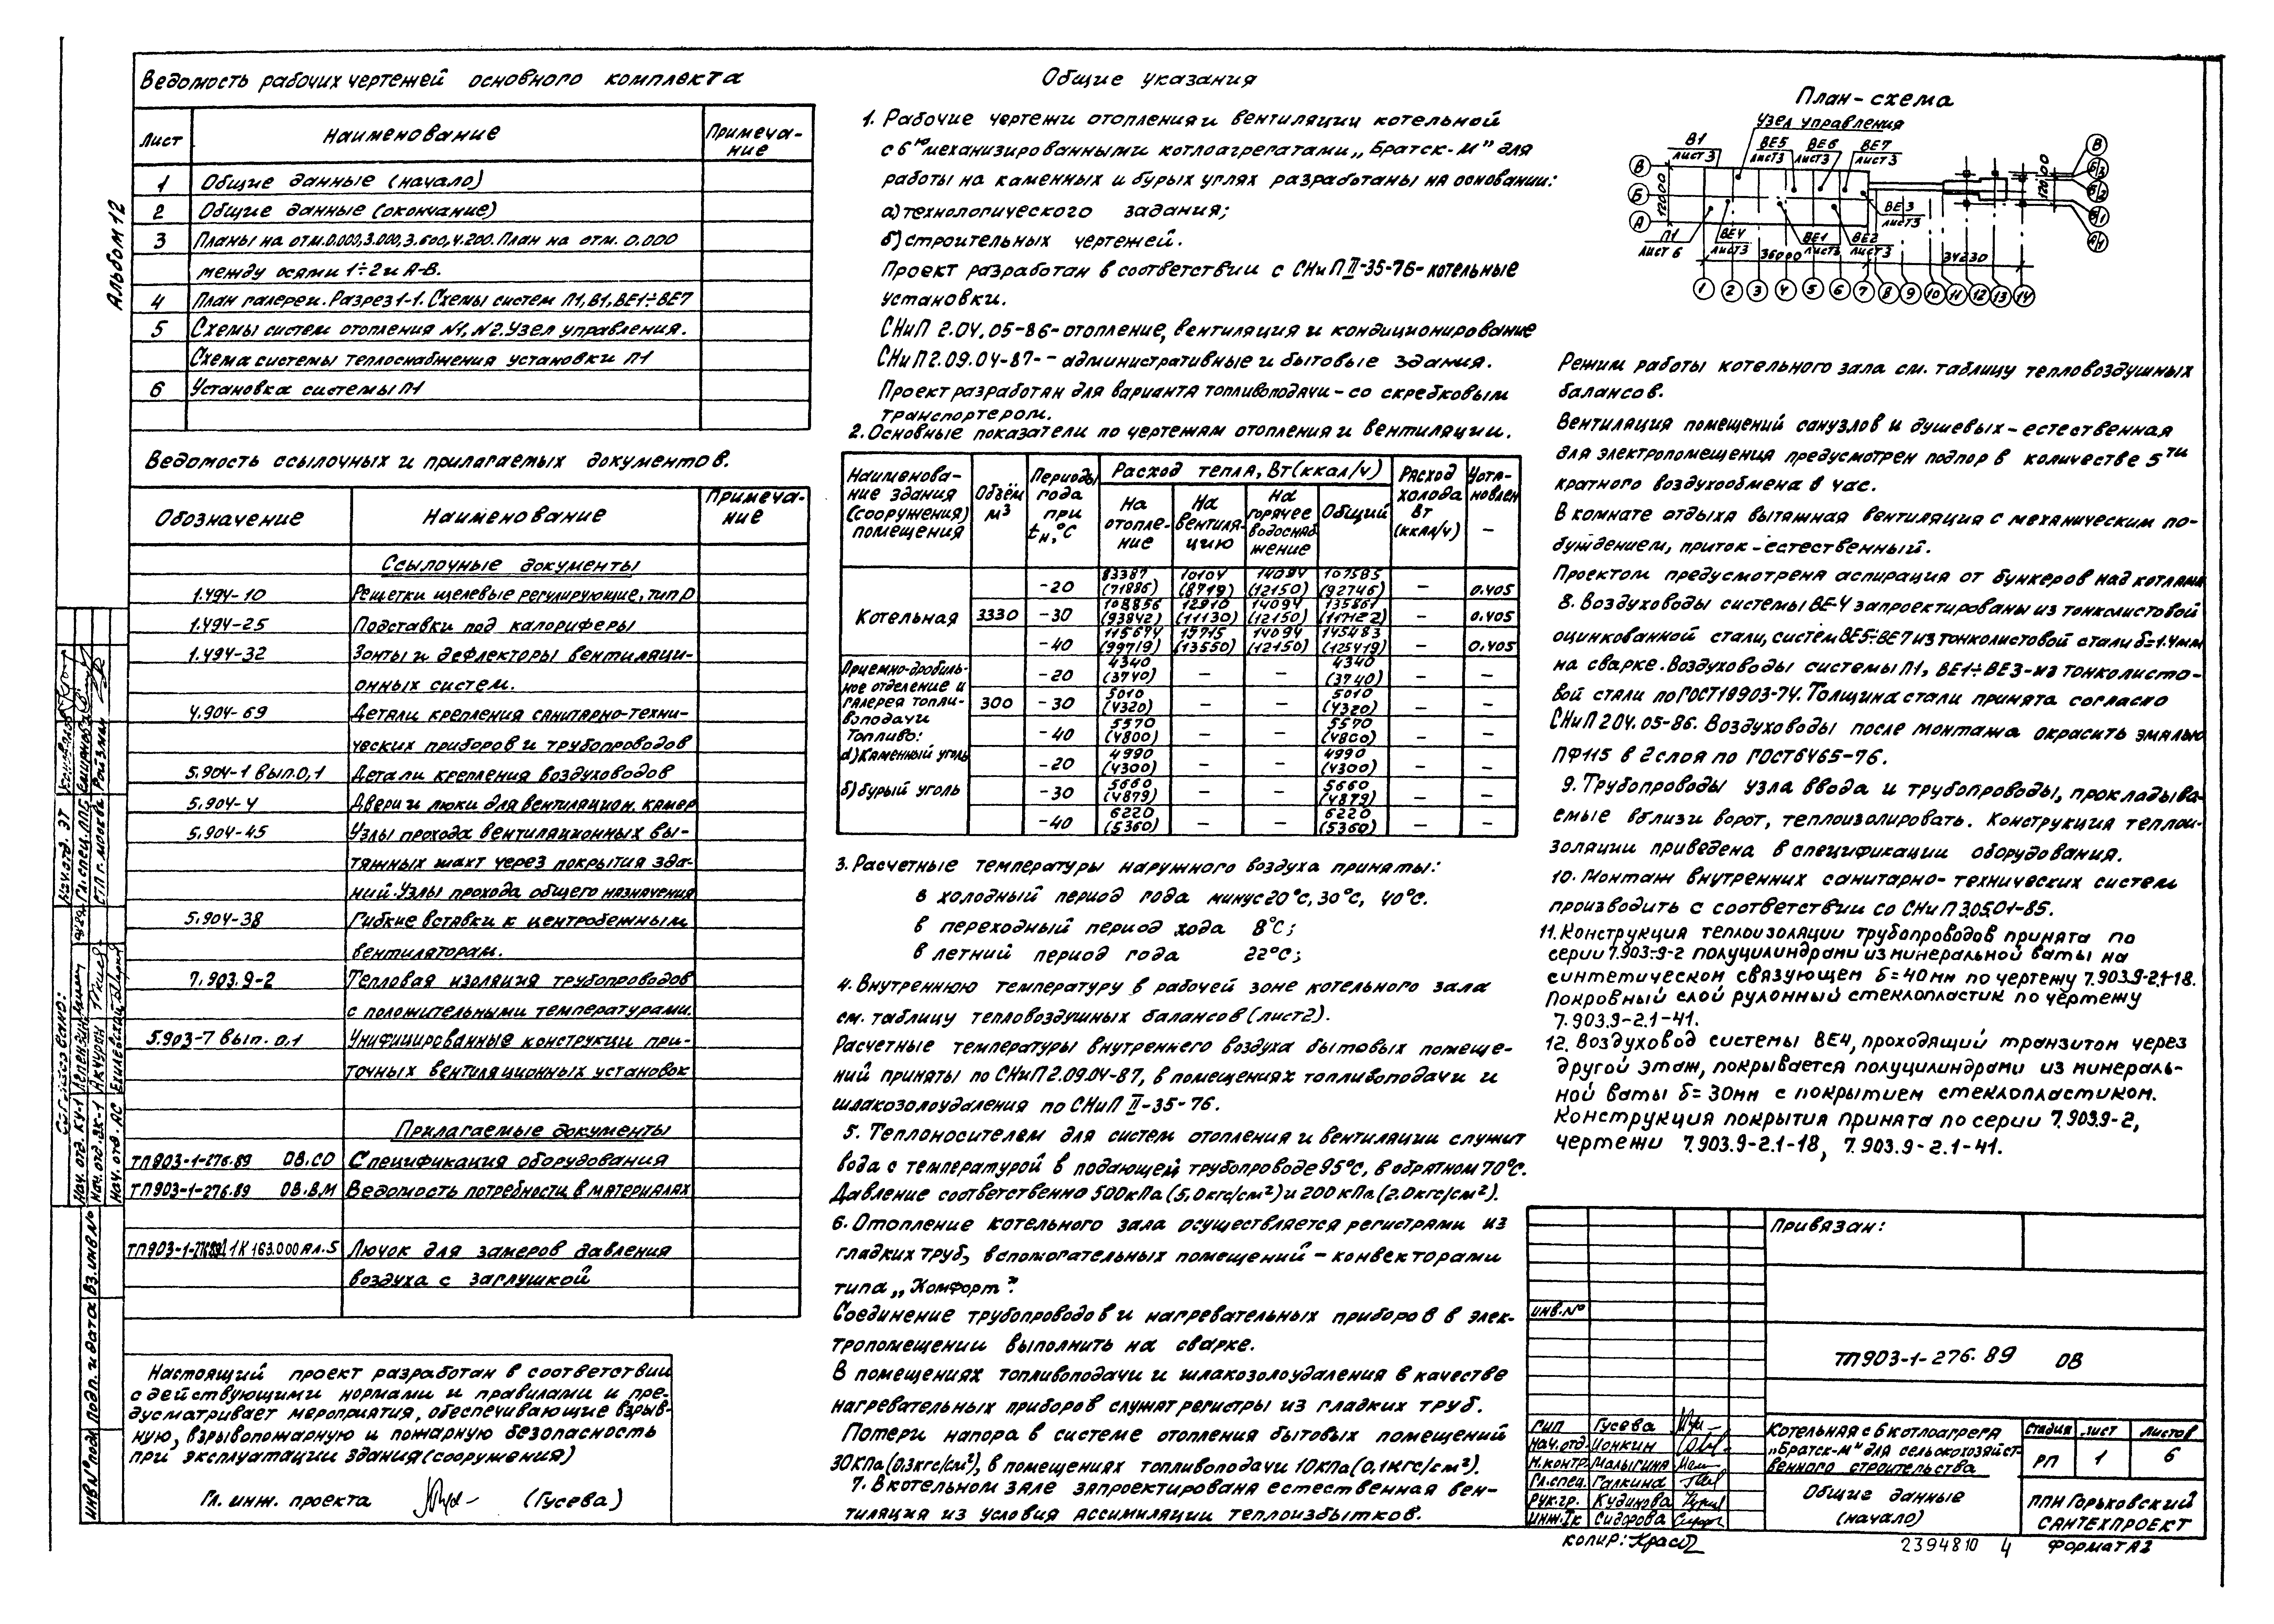 Альбом 12
Ведомость рабочих чертежей основного комплекта
Лист Наименование Примеча-
ние
1 Общие данные (начало)
2 Общие данные (окончание)
3 Планы на отм.0.000,3.000,3.600,4.200. План на отм. 0.000
между осями 1÷2 и А-В.
4 План галереи. Разрез 1-1. Схемы систем П1,В1,ВЕ1÷ВЕ7
5 Схемы систем отопления №1, №2. Узел управления.
Схема системы теплоснабжения установки П1
6 Установка системы П1
Ведомость ссылочных и прилагаемых документов.
Обозначение Наименование Примеча-
ние
Ссылочные документы
1.494-10 Решетки щелевые регулирующие, тип Р
1.494-25 Подставки под калориферы
1.494-32 Зонты и дефлекторы вентиляци-
онных систем.
4.904-69 Детали крепления санитарно-техни-
ческих приборов и трубопроводов
5.904-1 вып.0,1 Детали крепления воздуховодов
5.904-4 Двери и люки для вентиляцион. камер
5.904-45 Узлы прохода вентиляционных вы-
тяжных шахт через покрытия зда-
ний. Узлы прохода общего назначения
5.904-38 Гибкие вставки к центробежным
вентиляторам.
7.903.9-2 Тепловая изоляция трубопроводов
с положительными температурами.
5.903-7 вып. 0,1 Унифицированные конструкции при-
точных вентиляционных установок
Прилагаемые документы
ТП903-1-276.89 ОВ.СО Спецификация оборудования
ТП903-1-276.89 ОВ.ВМ Ведомость потребности в материалах
1К163.000 Ал.5 Лючок для замеров давления
воздуха с заглушкой
Настоящий проект разработан в соответствии
с действующими нормами и правилами и пре-
дусматривает мероприятия, обеспечивающие взрыв-
ную, взрывопожарную и пожарную безопасность
при эксплуатации здания (сооружения)
Гл. инж. проекта (Гусева)
Общие указания
1. Рабочие чертежи отопления и вентиляции котельной
с 6ю механизированными котлоагрегатами „Братск-М" для
работы на каменных и бурых углях разработаны на основании:
а) технологического задания;
б) строительных чертежей.
Проект разработан в соответствии с СНиП II-35-76-котельные
установки.
СНиП 2.04.05-86-отопление, вентиляция и кондиционирование
СНиП 2.09.04-87- - административные и бытовые здания.
Проект разработан для варианта топливоподачи - со скребковым
транспортером.
2. Основные показатели по чертежам отопления и вентиляции.
Наименова-
ние здания
(сооружения)
помещения
Объём
м³
Периоды
года
при
tн,°C
Расход тепла, Вт (ккал/ч)
На
отопле-
ние
На
вентиля-
цию
На
горячее
водоснаб
жение
Общий
Расход
холода
Вт
(ккал/ч)
Устa-
новлен
–
Котельная 3330
-20 83387 (71886) 10104 (8719) 14094 (12150) 107585 (92746) – 0.405
-30 108856 (93842) 12910 (11130) 14094 (12150) 135861 (117122) – 0.405
-40 115674 (99719) 15715 (13550) 14094 (12150) 145483 (125419) – 0.405
Приемно-дробиль-
ное отделение и
галерея топли-
воподачи
Топливо:
а) Каменный уголь
б) бурый уголь
300
-20 4340 (3740) – – 4340 (3740) – –
-30 5010 (4320) – – 5010 (4320) – –
-40 5570 (4800) – – 5570 (4800) – –
-20 4990 (4300) – – 4990 (4300) – –
-30 5660 (4879) – – 5660 (4879) – –
-40 6220 (5360) – – 6220 (5360) – –
3. Расчетные температуры наружного воздуха приняты:
в холодный период года минус 20°С, 30°С, 40°С.
в переходный период хода 8°С;
в летний период года 22°С;
4. Внутреннюю температуру в рабочей зоне котельного зала
см. таблицу тепловоздушных балансов (лист2).
Расчетные температуры внутреннего воздуха бытовых помеще-
ний приняты по СНиП 2.09.04-87, в помещениях топливоподачи и
шлакозолоудаления по СНиП II-35-76.
5. Теплоносителем для систем отопления и вентиляции служит
вода с температурой в подающем трубопроводе 95°С, в обратном 70°С.
Давление соответственно 500кПа (5,0кгс/см²) и 200кПа (2.0кгс/см²).
6. Отопление котельного зала осуществляется регистрами из
гладких труб, вспомогательных помещений - конвекторами
типа „Комфорт".
Соединение трубопроводов и нагревательных приборов в элек-
тропомещении выполнить на сварке.
В помещениях топливоподачи и шлакозолоудаления в качестве
нагревательных приборов служат регистры из гладких труб.
Потери напора в системе отопления бытовых помещений
30кПа (0.3кгс/см²), в помещениях топливоподачи 10кПа (0,1кгс/см²).
7. В котельном зале запроектирована естественная вен-
тиляция из условия ассимиляции теплоизбытков.
План-схема
Узел управления
В1 лист 3
ВЕ5 лист 3
ВЕ6 лист 3
ВЕ7 лист 3
ВЕ3 лист 3
П1 лист 6
ВЕ4 лист 3
ВЕ1 лист 3
ВЕ2 лист 3
В Б А
12000 36000 34230 12000
1 2 3 4 5 6 7 8 9 10 11 12 13 14
Режим работы котельного зала см. таблицу тепловоздушных
балансов.
Вентиляция помещений санузлов и душевых - естественная
для электропомещения предусмотрен подпор в количестве 5ти
кратного воздухообмена в час.
В комнате отдыха вытяжная вентиляция с механическим по-
буждением, приток - естественный.
Проектом предусмотрена аспирация от бункеров над котлами
8. Воздуховоды системы ВЕ-4 запроектированы из тонколистовой
оцинкованной стали, систем ВЕ5÷ВЕ7 из тонколистовой стали δ=1.4мм
на сварке. Воздуховоды системы П1, ВЕ1÷ВЕ3-из тонколисто-
вой стали по ГОСТ19903-74. Толщина стали принята согласно
СНиП 2.04.05-86. Воздуховоды после монтажа окрасить эмалью
ПФ115 в 2 слоя по ГОСТ6465-76.
9. Трубопроводы узла ввода и трубопроводы, прокладыва-
емые вблизи ворот, теплоизолировать. Конструкция теплои-
золяции приведена в спецификации оборудования.
10. Монтаж внутренних санитарно-технических систем
производить с соответствии со СНиП 3.05.01-85.
11. Конструкция теплоизоляции трубопроводов принята по
серии 7.903-9-2 полуцилиндрами из минеральной ваты на
синтетическом связующем δ=40мм по чертежу 7.903.9-2.1-18.
Покровный слой рулонный стеклопластик по чертежу
7.903.9-2.1-41.
12. Воздуховод системы ВЕ4, проходящий транзитом через
другой этаж, покрывается полуцилиндрами из минераль-
ной ваты δ=30мм с покрытием стеклопластиком.
Конструкция покрытия принята по серии 7.903.9-2,
чертежи 7.903.9-2.1-18, 7.903.9-2.1-41.
Привязан:
инв.№
ТП903-1-276.89 ОВ
ГИП Гусева
Нач.отд. Ионкин
Н.контр. Малыгина
Гл.спец. Галкина
Рук.гр. Кудинова
Инж.Iк Сидорова
Котельная с 6 котлоагрега
„Братск-М" для сельскохозяйст-
венного строительства
Стадия лист листов
РП 1 6
Общие данные
(начало)
ППН Горьковский
САНТЕХПРОЕКТ
копир:
2394810 4 Формат А2
Согласовано:
Нач. отд. КУ-1
Нач. отд. ЭК-1 Акчурин
Нач. отд. АС
Нач. отд. ЭТ
Гл. спец. ППБ
СТП г. Москва Ройзман
Инв № подл. Подп. и дата Вз. инв №